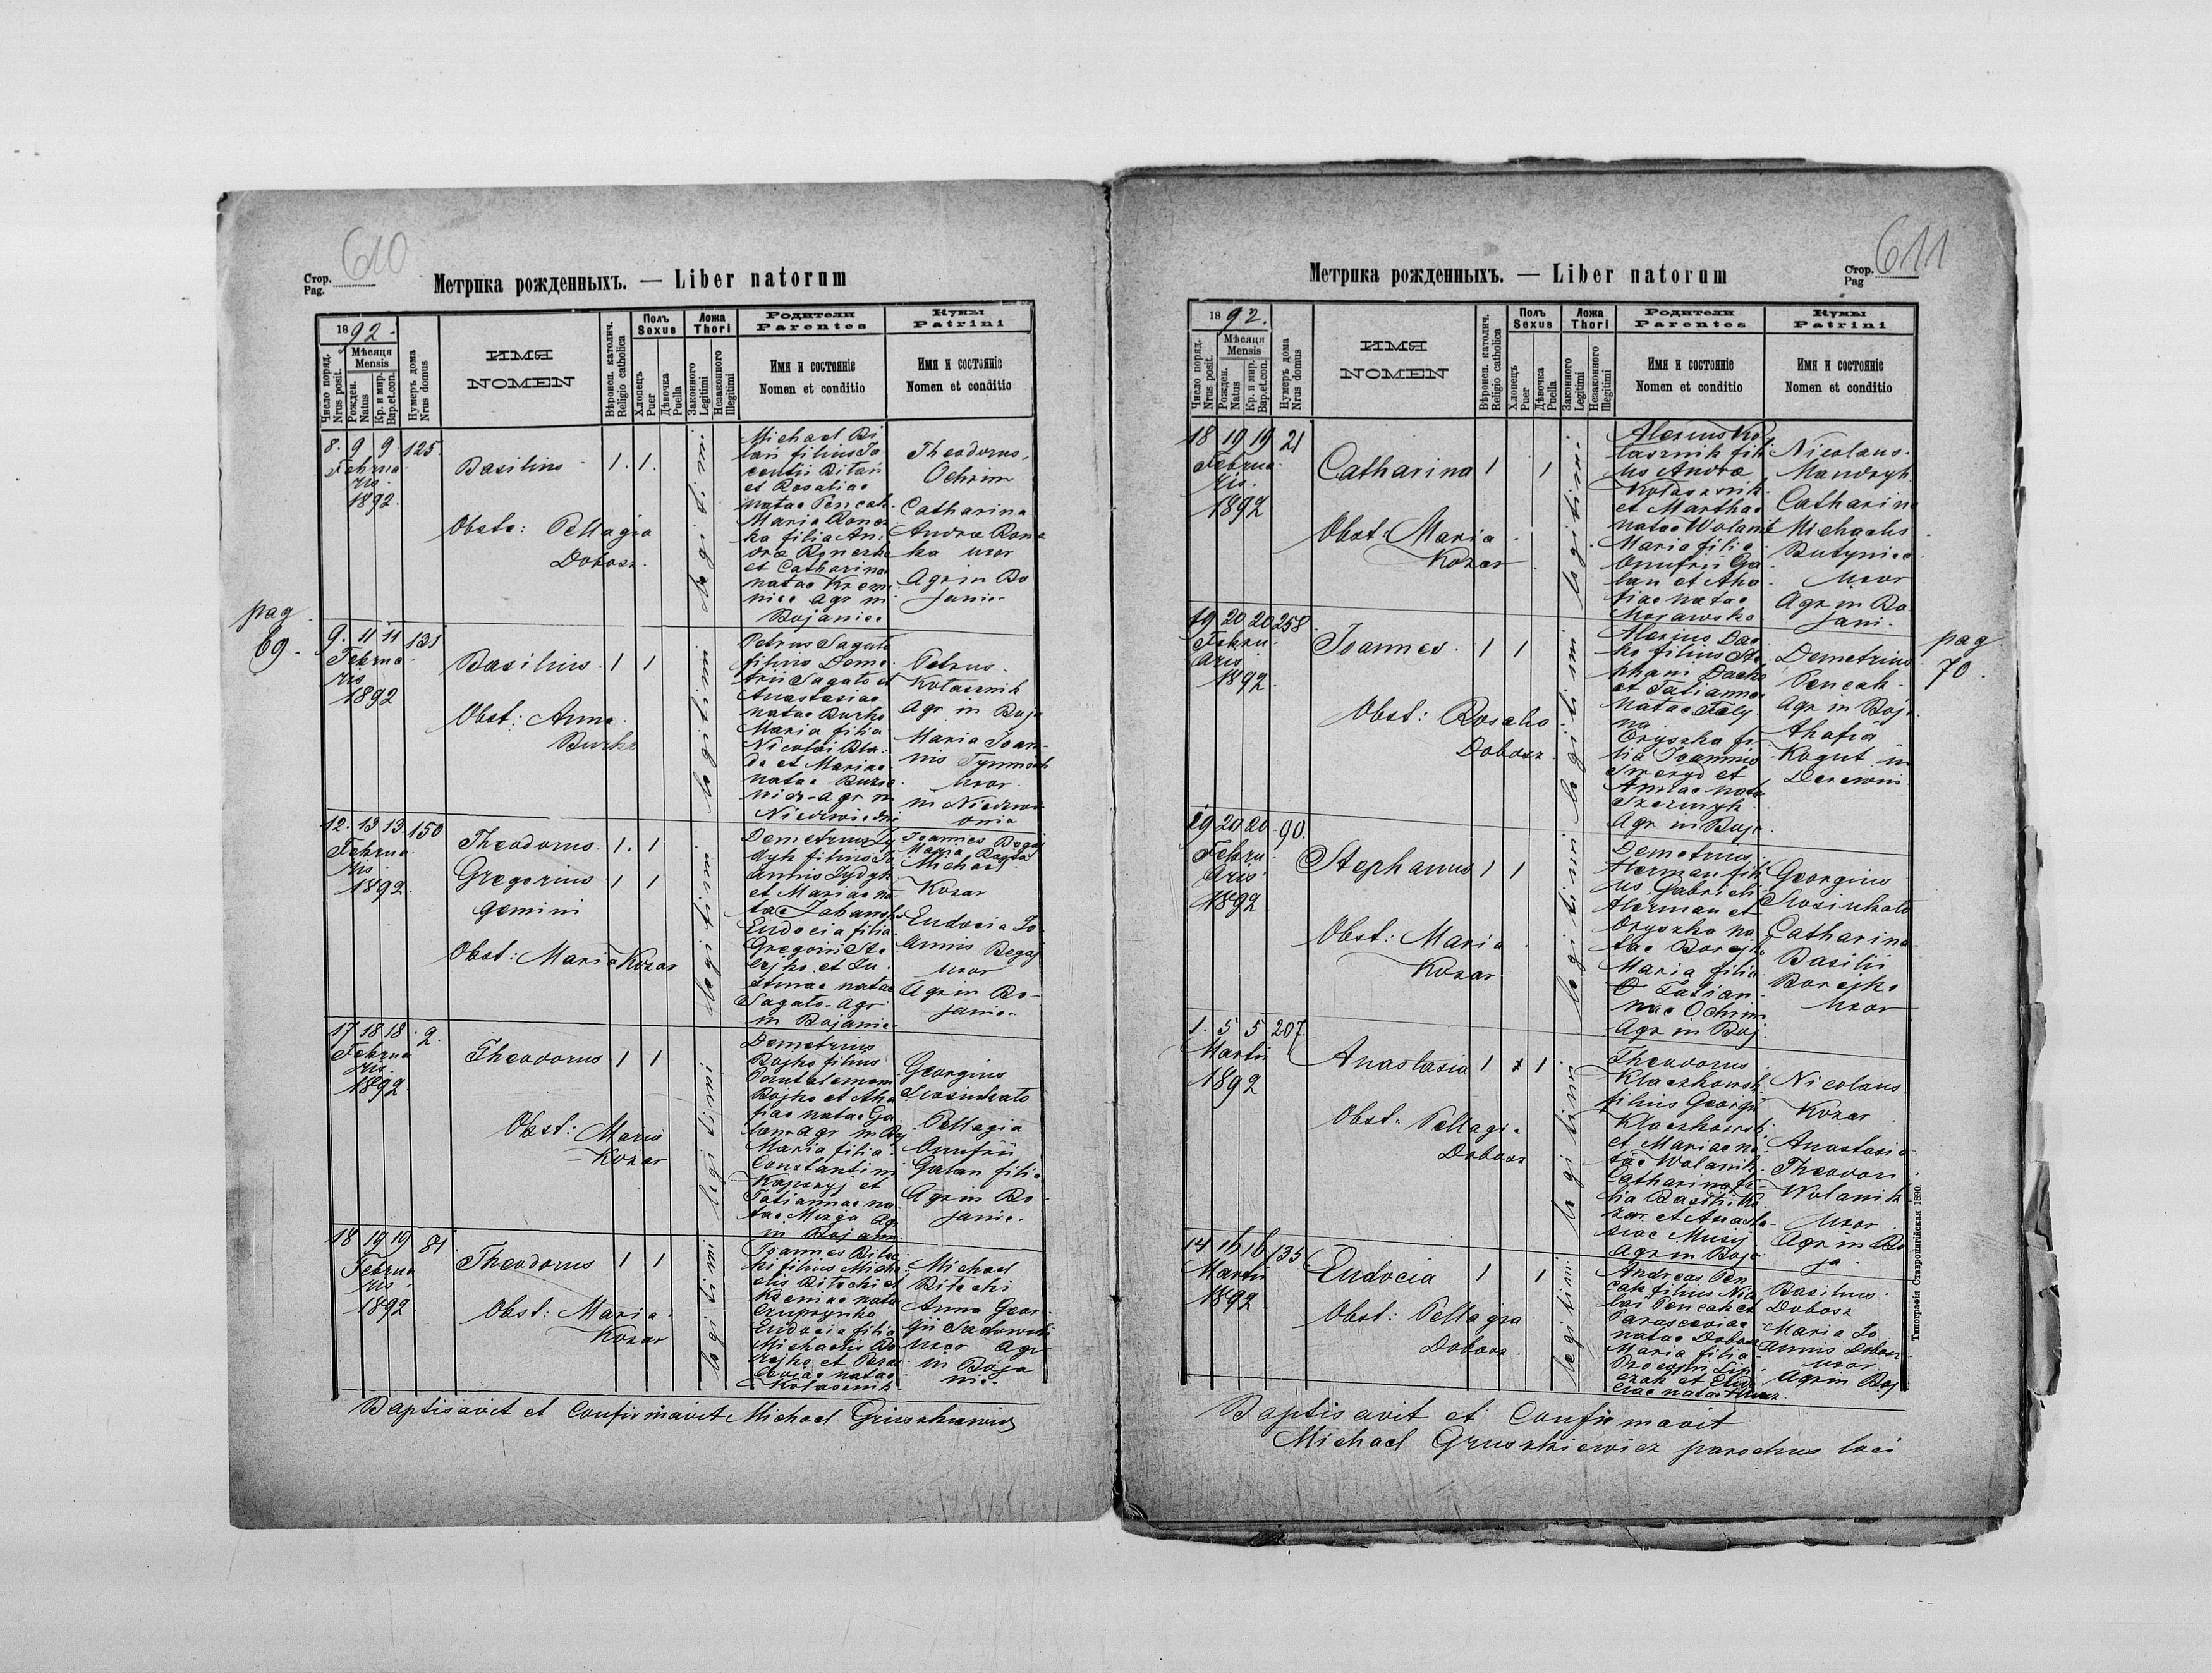 610
Стор.
Pag.
Метрика рожденныхъ. — Liber natorum
1892.
Число поряд.
Nrus posit.
Мѣсяця
Mensis
Рожден.
Natus
Кр. и мир.
Bap.et.con.
Нумеръ дома
Nrus domus
ИМЯ
NOMEN
Вѣроисп. католич.
Religio catholica
Полъ
Sexus
Хлопецъ
Puer
Дѣвочка
Puella
Ложа
Thori
Законного
Legitimi
Незаконного
Illegitimi
Родители
Parentes
Имя и состояніе
Nomen et conditio
Кумы
Patrini
Имя и состояніе
Nomen et conditio
pag
69.
8. 9 9 125.
Februa
ris
1892.
Basilius 1. 1.
Obste: Pellagia
Dobosz.
legitimi
Michael Bi
lan filius
Bilan
et Rosaliae
natae Pencak
Maria Roncz
ka filia An
drae Ronczka
et Catharinae
natae Krem
nice Agr in
Bojanice
Theodorus
Ochrim
Catharina
Andrae Roncz
ka uxor
Agr in Bo
janic.
9. 11 11 131
Februa
ris
1892
Basilius 1 1
Obst: Anna
Burko
legitimi
Petrus Sagato
filius Deme
trii Sagato et
Anastasiae
natae Burko
Maria filia
Nicolai
da et Mariae
natae
Agr in
Niedzwiedni
Petrus
Kolasznik
Agr in Boja
Maria Joan
nis
uxor
in Niedzwie
12. 13 13 150
Februa
ris
1892.
Theodorus. 1. 1
Gregorius 1 1
gemini
Obst: Maria Kozar
legitimi
Demetrius
filius Jo
annis
et Mariae na
tae
Eudocia filia
Gregorii
et
natae
Sagato Agr
in Bojanic.
Joannes Begaj
Maria
Michael
Kozar
Eudocia Jo
annis Begaj
uxor
Agr in Bo
janic.
17 18 18 2.
Februa
ris
1892.
Theodorus 1 1
Obst: Maria
Kozar
legitimi
Demetrius
Bojko filius
Pantalemoni
Bojko et Aha
fiae natae Ga
lan Agr in Boj
Maria filia
Constantini
et
Tatiannae na
tae Mizga Agr
in Bojani
Georgius
Pellagia
Onufrii
Galan filia
Agr in Bo
janic.
18 19 19 81
Februa
ris
1892
Theodorus 1 1
Obst: Maria
Kozar
legitimi
Joannes Bitec
ki filius Micha
elis Bitecki et
Kseniae natae
Czuprynko
Eudocia filia
Michaelis Bo
rejko et Paras
ceviae natae
Kolasznik
Michael
Bitecki
Anna Geor
gii Sadowski
uxor Agr
in Boja
nic.
Baptisavit et Confirmavit Michael Gruszkiewicz
611
Стор.
Pag
Метрика рожденныхъ. — Liber natorum
1892.
Число поряд.
Nrus posit.
Мѣсяця
Mensis
Рожден.
Natus
Кр. и мир.
Bap.et.con.
Нумеръ дома
Nrus domus
ИМЯ
NOMEN
Вѣроисп. католич.
Religio catholica
Полъ
Sexus
Хлопецъ
Puer
Дѣвочка
Puella
Ложа
Thori
Законного
Legitimi
Незаконного
Illegitimi
Родители
Parentes
Имя и состояніе
Nomen et conditio
Кумы
Patrini
Имя и состояніе
Nomen et conditio
18 19 19 21
Februa
ris.
1892
Catharina 1 1
Obst: Maria
Kozar
legitimi
Alexius Ko
lasznik fili
us Andrae
Kolasznik
et Marthae
natae Wolanik
Maria filia
Onufrii Ga
lan et Aha
fiae natae
Mojawska
Nicolaus
Mandryk
Catharina
Michaelis
Butyniec
uxor
Agr in Bo
jani.
pag
70.
19 20 20 258.
Febru
aris
1892
Joannes 1 1
Obst: Roscho
Dobosz
legitimi
Alexius Dac
ko filius Ste
phani Dacko
et Tatiannae
natae Fely
na
Oryszka fi
lia Joannis
et
Annae natae
Agr in Boja
Demetrius
Pencak
Agr in Boja
Ahafia
Kogut in
Derewni
19 20 20 90.
Febru
aris
1892
Stephanus 1 1
Obst: Maria
Kozar
legitimi
Demetrius
Herman fili
us Gabrieli
Herman et
Oryszka na
tae Borejko
Maria filia
Tatian
nae Ochrim
Agr in Boj.
Georgius
Catharina
Basilii
Borejko
uxor
1. 5 5 207.
Martii
1892
Anastasia 1 1
Obst: Pellagia
Dobosz
legitimi
Theodorus
Klaczkowski
filius Georgii
Klaczkowski
et Mariae na
tae Wolanik
Catharina fi
lia Basilii Ko
zar et Anasta
siae Musij
Agr in Boja
Nicolaus
Kozar
Anastasia
Theodori
Wolanik
uxor
Agr in Bo
ja.
14 16 16 135
Martii
1892
Eudocia 1 1
Obst: Pellagia
Dobosz
legitimi
Andreas Pen
cak filius Nico
lai Pencak et
Parasceviae
natae Dobosz
Maria filia
Procopii
et Eudo
ciae natae
Basilius
Dobosz
Maria Jo
annis Dobosz
uxor
Agr in Boj
Baptisavit et Confirmavit
Michael Gruszkiewicz parochus loci
Типографія Ставропигійская 1890.